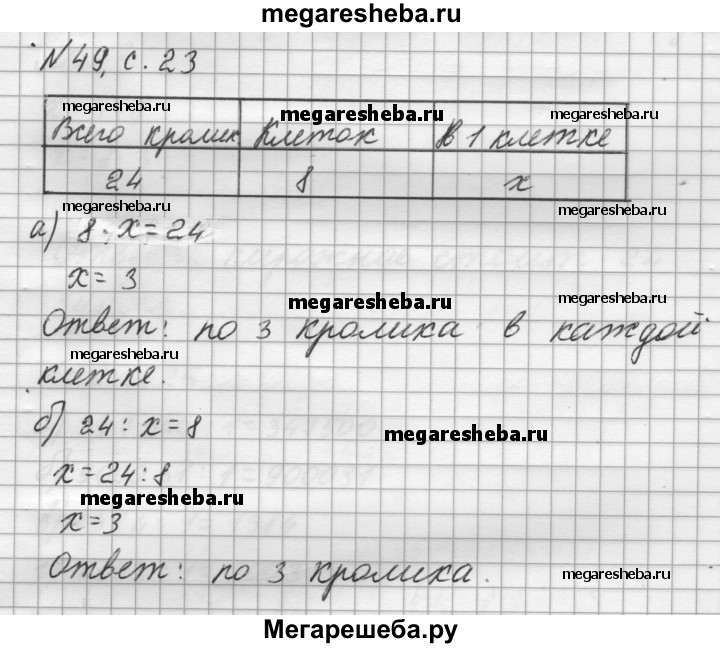 megaresheba.ru
№49, с. 23
megaresheba.ru megaresheba.ru megaresheba.ru
Всего кролик Клеток В 1 клетке
24 8 x
megaresheba.ru megaresheba.ru
а) 8 · x = 24
x = 3
megaresheba.ru megaresheba.ru
Ответ: по 3 кролика в каждой
megaresheba.ru
клетке.
б) 24 : x = 8
megaresheba.ru
x = 24 : 8
megaresheba.ru
x = 3
Ответ: по 3 кролика.
megaresheba.ru
Мегарешеба.ру